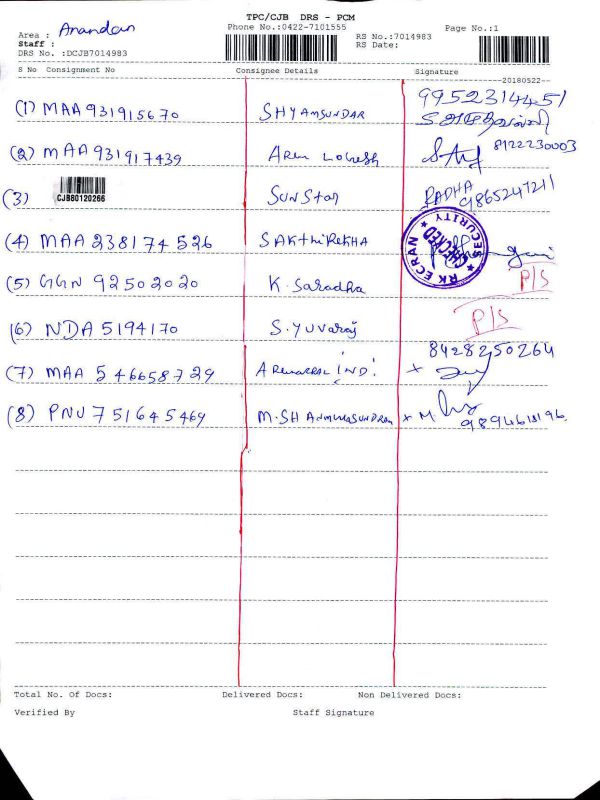 TPC/CJB DRS - PCM
Area : Anandan Phone No.:0422-7101555 Page No.:1
Staff : RS No.:7014983
DRS No. :DCJB7014983 RS Date:
S No Consignment No Consignee Details Signature
20180522
(1) MAA 931915670 SHYAMSUNDAR 9952314451
(2) MAA 931917439 Arun Logesh 8122230003
(3) CJB80120266 SunStar RADHA 9865247211
(4) MAA 238174526 SAKthiRekHA
RK ECRAN SECURITY CHECKED
(5) GGN 92502020 K. Saradha P/S
(6) NDA 5194170 S. Yuvaraj P/S
(7) MAA 546658729 INDi 8428250264
(8) PNU 751645469 M. SHAnmugaSundram × M
Total No. Of Docs: Delivered Docs: Non Delivered Docs:
Verified By Staff Signature